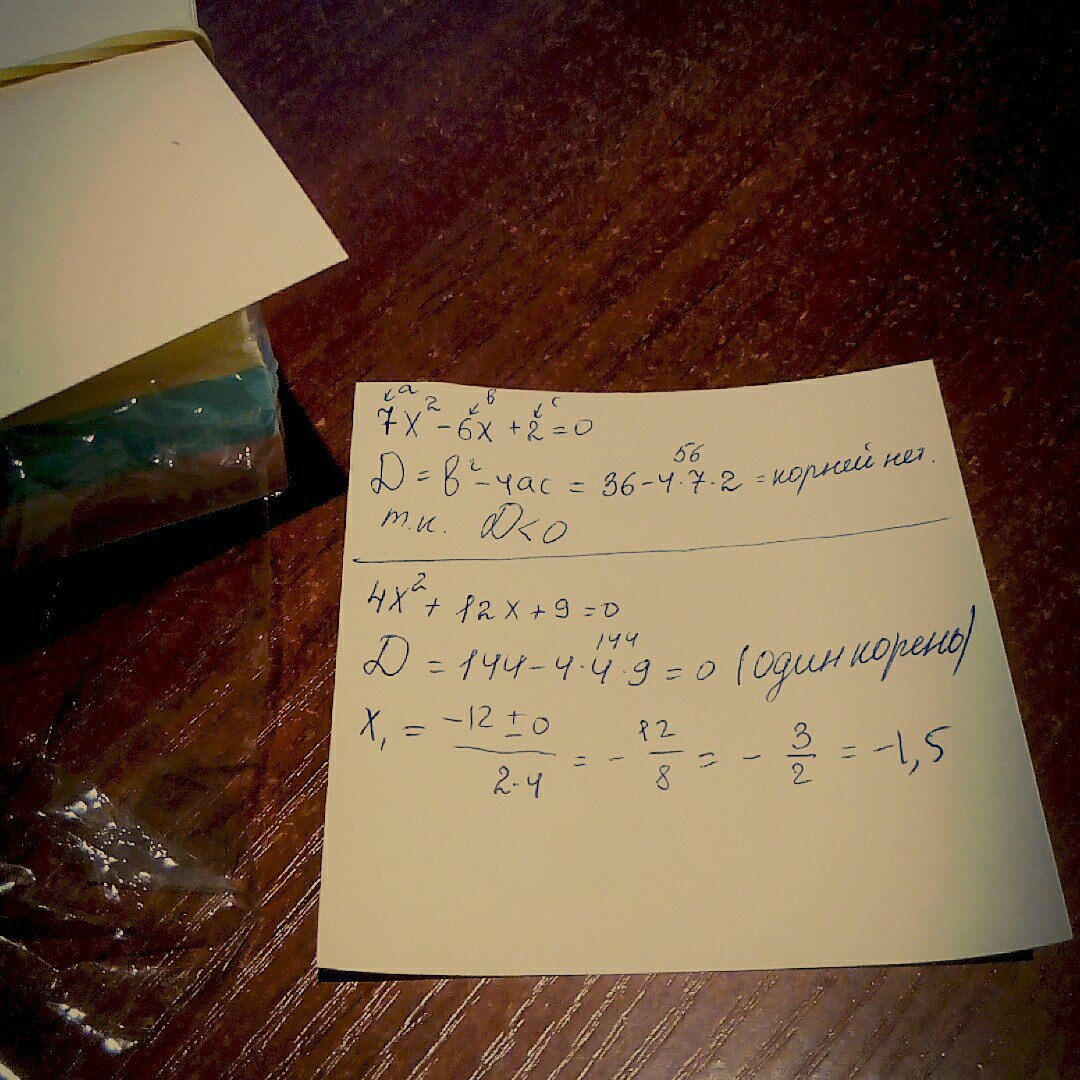 a в c
7x² - 6x + 2 = 0
56
D = в² - 4ac = 36 - 4·7·2 = корней нет.
т.к. D < 0
4x² + 12x + 9 = 0
144
D = 144 - 4·4·9 = 0 (один корень)
x₁ = \frac{-12 ± 0}{2·4} = - \frac{12}{8} = - \frac{3}{2} = -1,5